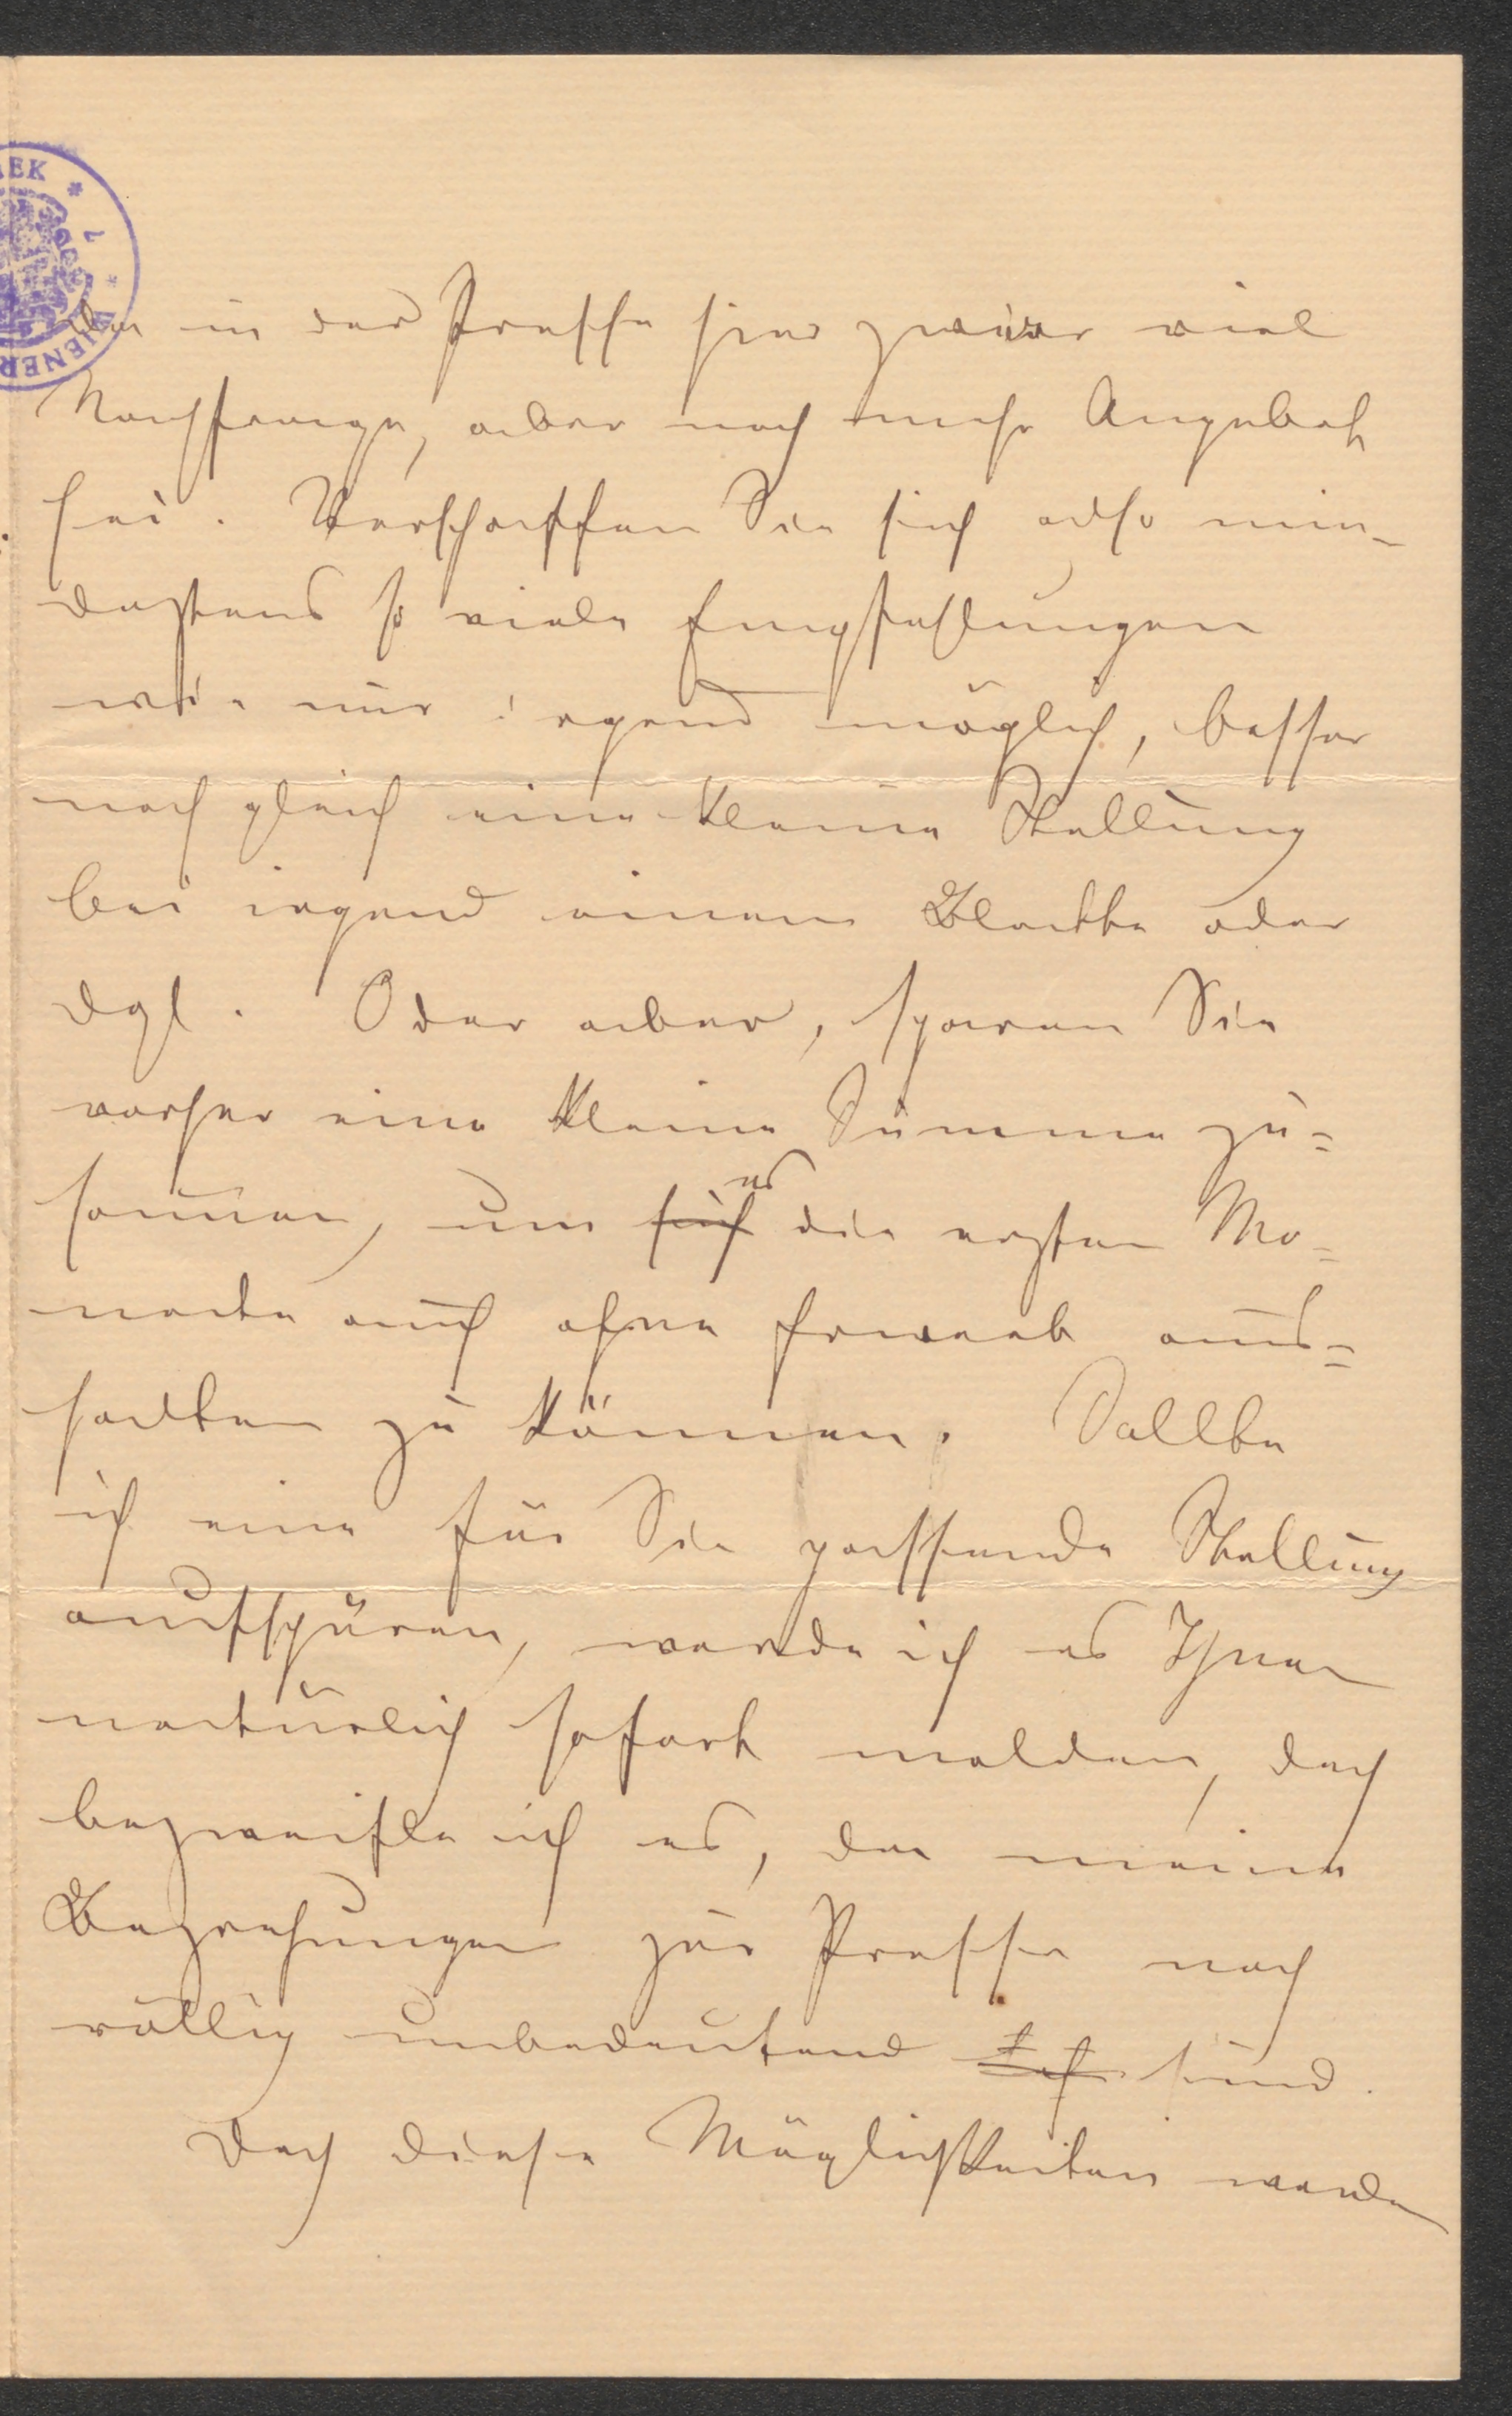 EK * 7 * WIENER
in der Presse hier zwar viel
Nachfrage, aber noch mehr Angebot
sei. Verschaffen Sie sich also min-
destens so viele Empfehlungen
wie nur irgend möglich, besser
noch gleich eine kleine Stellung
bei irgend einem Blatte oder
dgl. Oder aber, sparen Sie
vorher eine kleine Summe zu=
sammen, um sich es die ersten Mo=
nate auch ohne Erwerb aus=
halten zu können. Sollte
ich eine für Sie passende Stellung
aufspüren, werde ich es Ihnen
natürlich sofort melden, doch
bezweifle ich es, da meine
Beziehungen zur Presse noch
völlig unbedeutend sind.
Doch diese Möglichkeiten werden